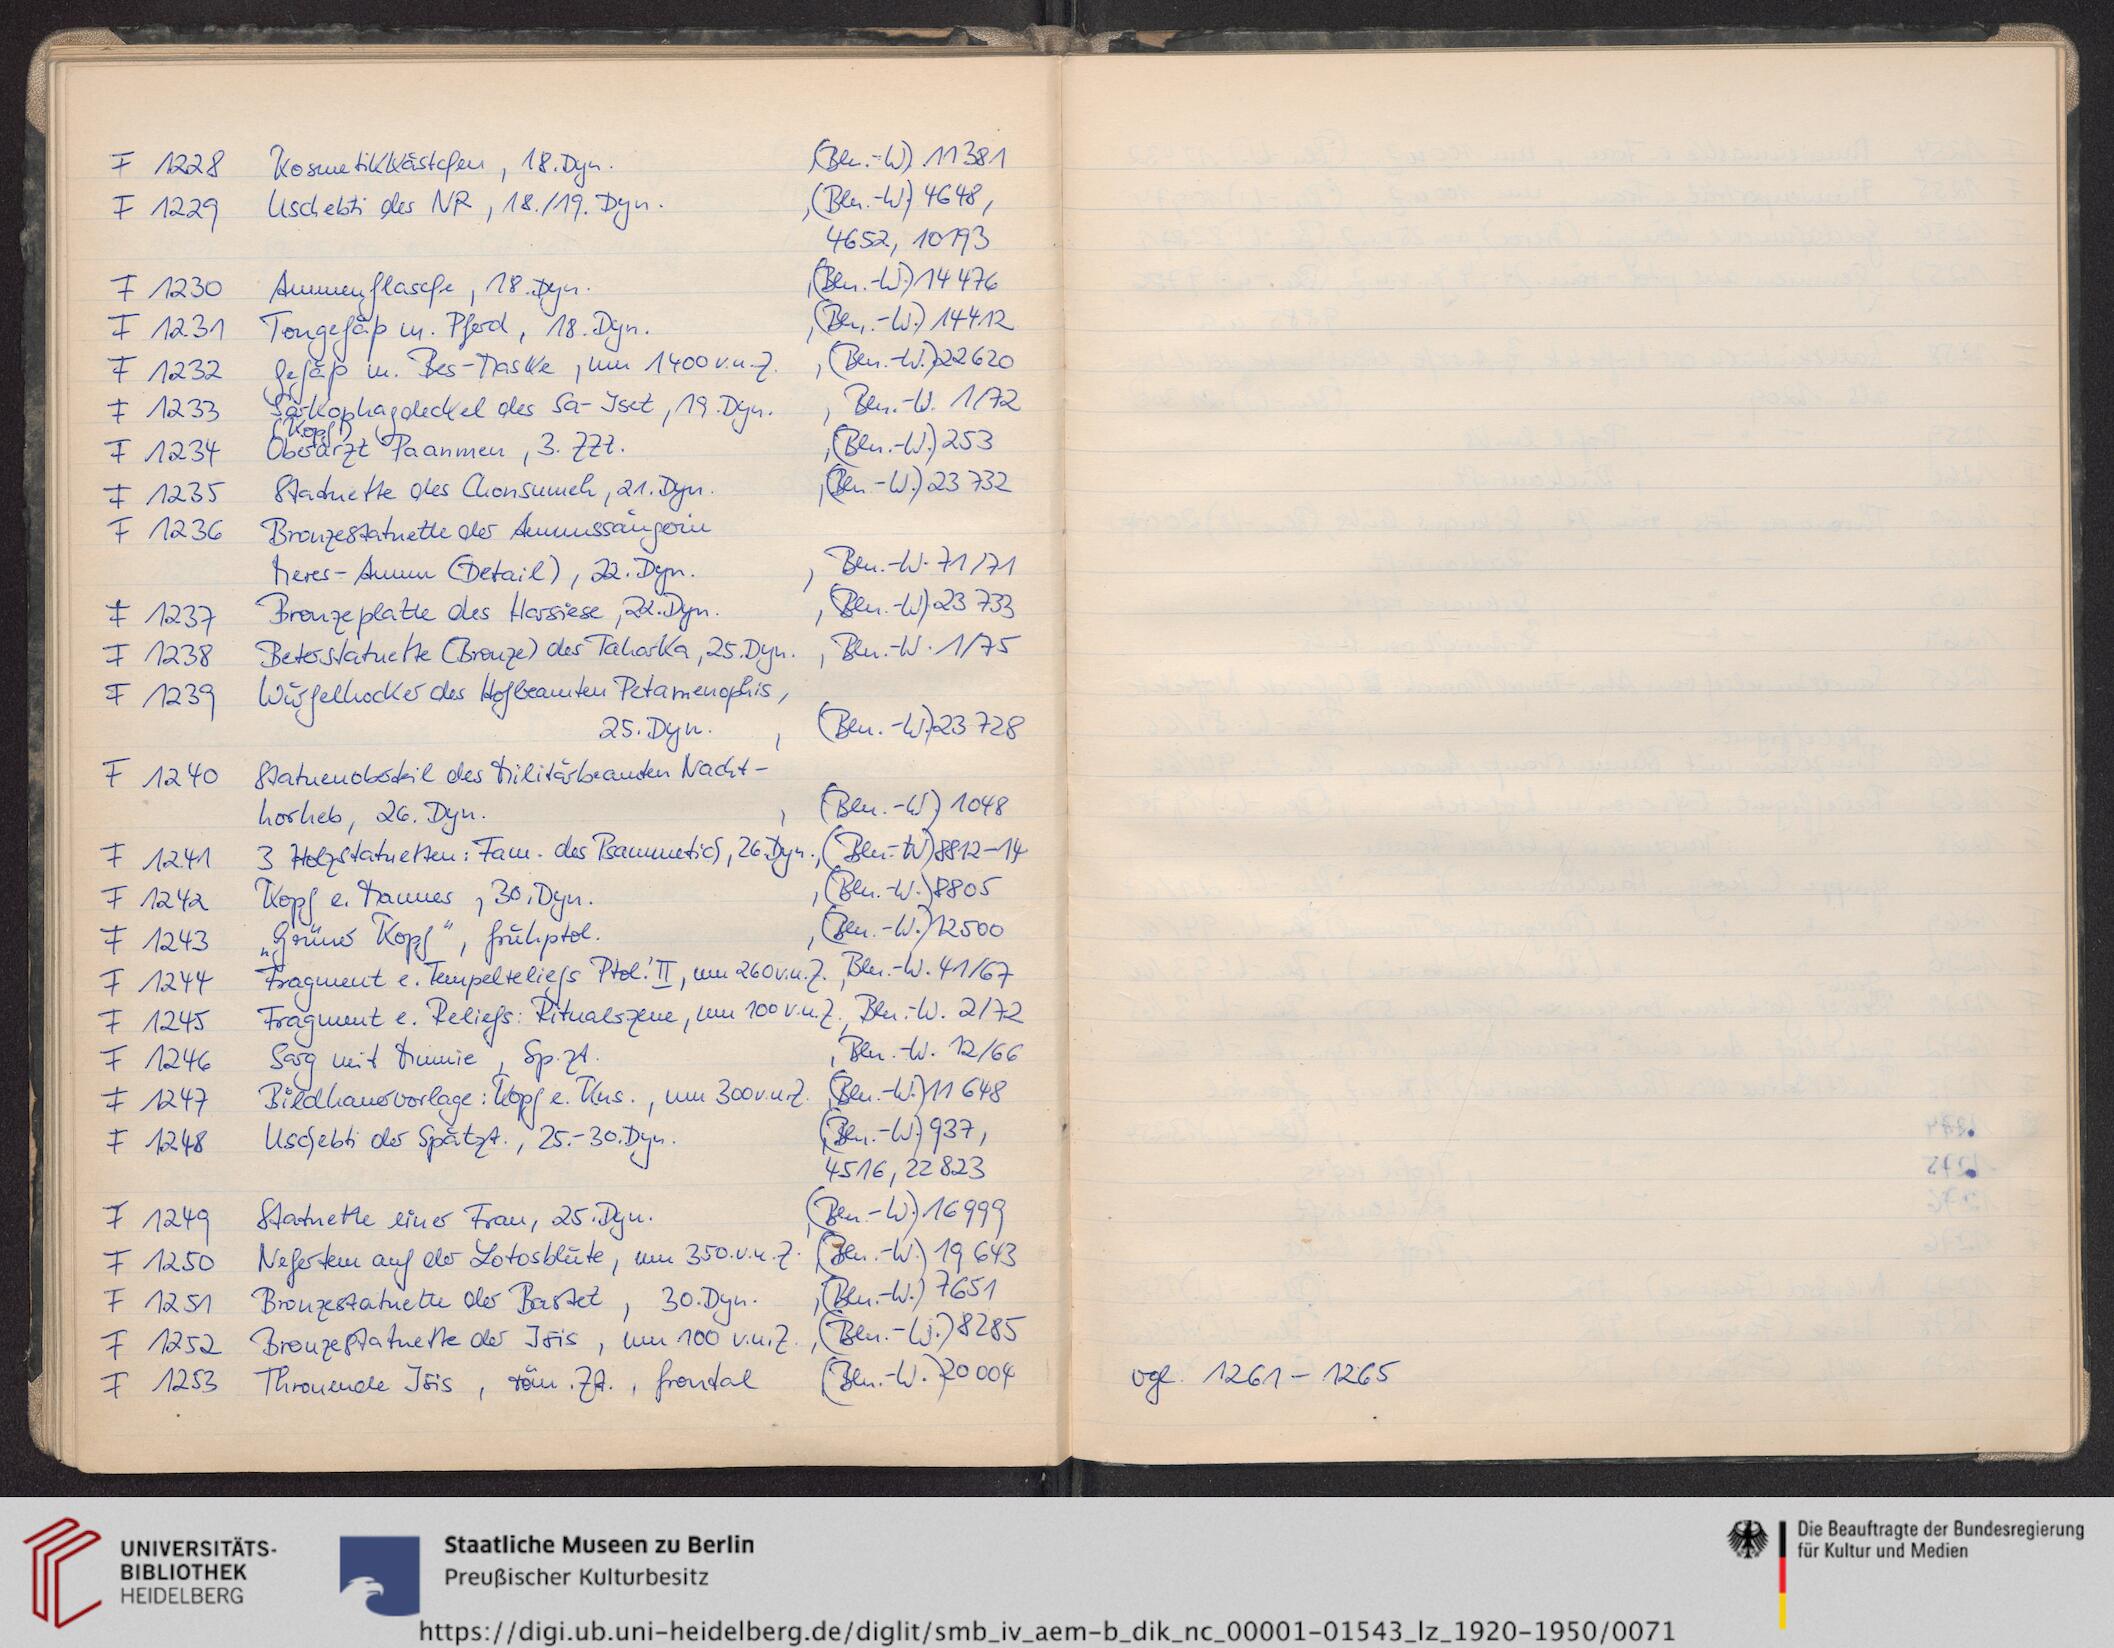 F 1228 Kosmetikkästchen, 18. Dyn. , (Bln.-W) 11381
F 1229 Uschebti des NR, 18./19. Dyn. , (Bln.-W) 4648,
4652, 10193
F 1230 Ammenflasche, 18. Dyn. , (Bln.-W.) 14476
F 1231 Tongefäß m. Pferd, 18. Dyn. , (Bln.-W.) 14412
F 1232 Gefäß m. Bes-Maske, um 1400 v.u.Z. , (Bln.-W.) 22620
F 1233 Sarkophagdeckel des Sa-Iset, 19. Dyn. , Bln.-W. 1/72
(Kopf)
F 1234 Oberarzt Paanmen, 3. ZZt. , (Bln.-W.) 253
F 1235 Statuette des Chonsumeh, 21. Dyn. , (Bln.-W.) 23732
F 1236 Bronzestatuette der Amunssängerin
Meres-Amun (Detail), 22. Dyn. , Bln.-W. 71/71
F 1237 Bronzeplatte des Harsiese, 22. Dyn. , (Bln.-W) 23733
F 1238 Beterstatuette (Bronze) des Taharka, 25. Dyn. , Bln.-W. 1/75
F 1239 Würfelhocker des Hofbeamten Petamenophis,
25. Dyn. , (Bln.-W.) 23728
F 1240 Statuenoberteil des Militärbeamten Nacht-
horheb, 26. Dyn. , (Bln.-W) 1048
F 1241 3 Holzstatuetten: Fam. des Psammetich, 26. Dyn., (Bln.-W) 8812-14
F 1242 Kopf e. Mannes, 30. Dyn. , (Bln.-W.) 8805
F 1243 „Grüner Kopf“, frühptol. , (Bln.-W.) 12500
F 1244 Fragment e. Tempelreliefs Ptol. II, um 260 v.u.Z. , Bln.-W. 41/67
F 1245 Fragment e. Reliefs: Ritualszene, um 100 v.u.Z., Bln.-W. 2/72
F 1246 Sarg mit Mumie, Sp.zt. , Bln.-W. 12/66
F 1247 Bildhauervorlage: Kopf e. Kgs., um 300 v.u.Z. (Bln.-W.) 11648
F 1248 Uschebti der Spätzt., 25.-30. Dyn. (Bln.-W.) 937,
4516, 22823
F 1249 Statuette einer Frau, 25. Dyn. , (Bln.-W.) 16999
F 1250 Nefertem auf der Lotosblüte, um 350 v.u.Z. , (Bln.-W.) 19643
F 1251 Bronzestatuette der Bastet, 30. Dyn. , (Bln.-W.) 7651
F 1252 Bronzestatuette der Isis, um 100 v.u.Z. , (Bln.-W.) 8285
F 1253 Thronende Isis, röm. Zt., frontal (Bln.-W.) 20004
vgl. 1261-1265
UNIVERSITÄTS-
BIBLIOTHEK
HEIDELBERG
Staatliche Museen zu Berlin
Preußischer Kulturbesitz
Die Beauftragte der Bundesregierung
für Kultur und Medien
https://digi.ub.uni-heidelberg.de/diglit/smb_iv_aem-b_dik_nc_00001-01543_lz_1920-1950/0071